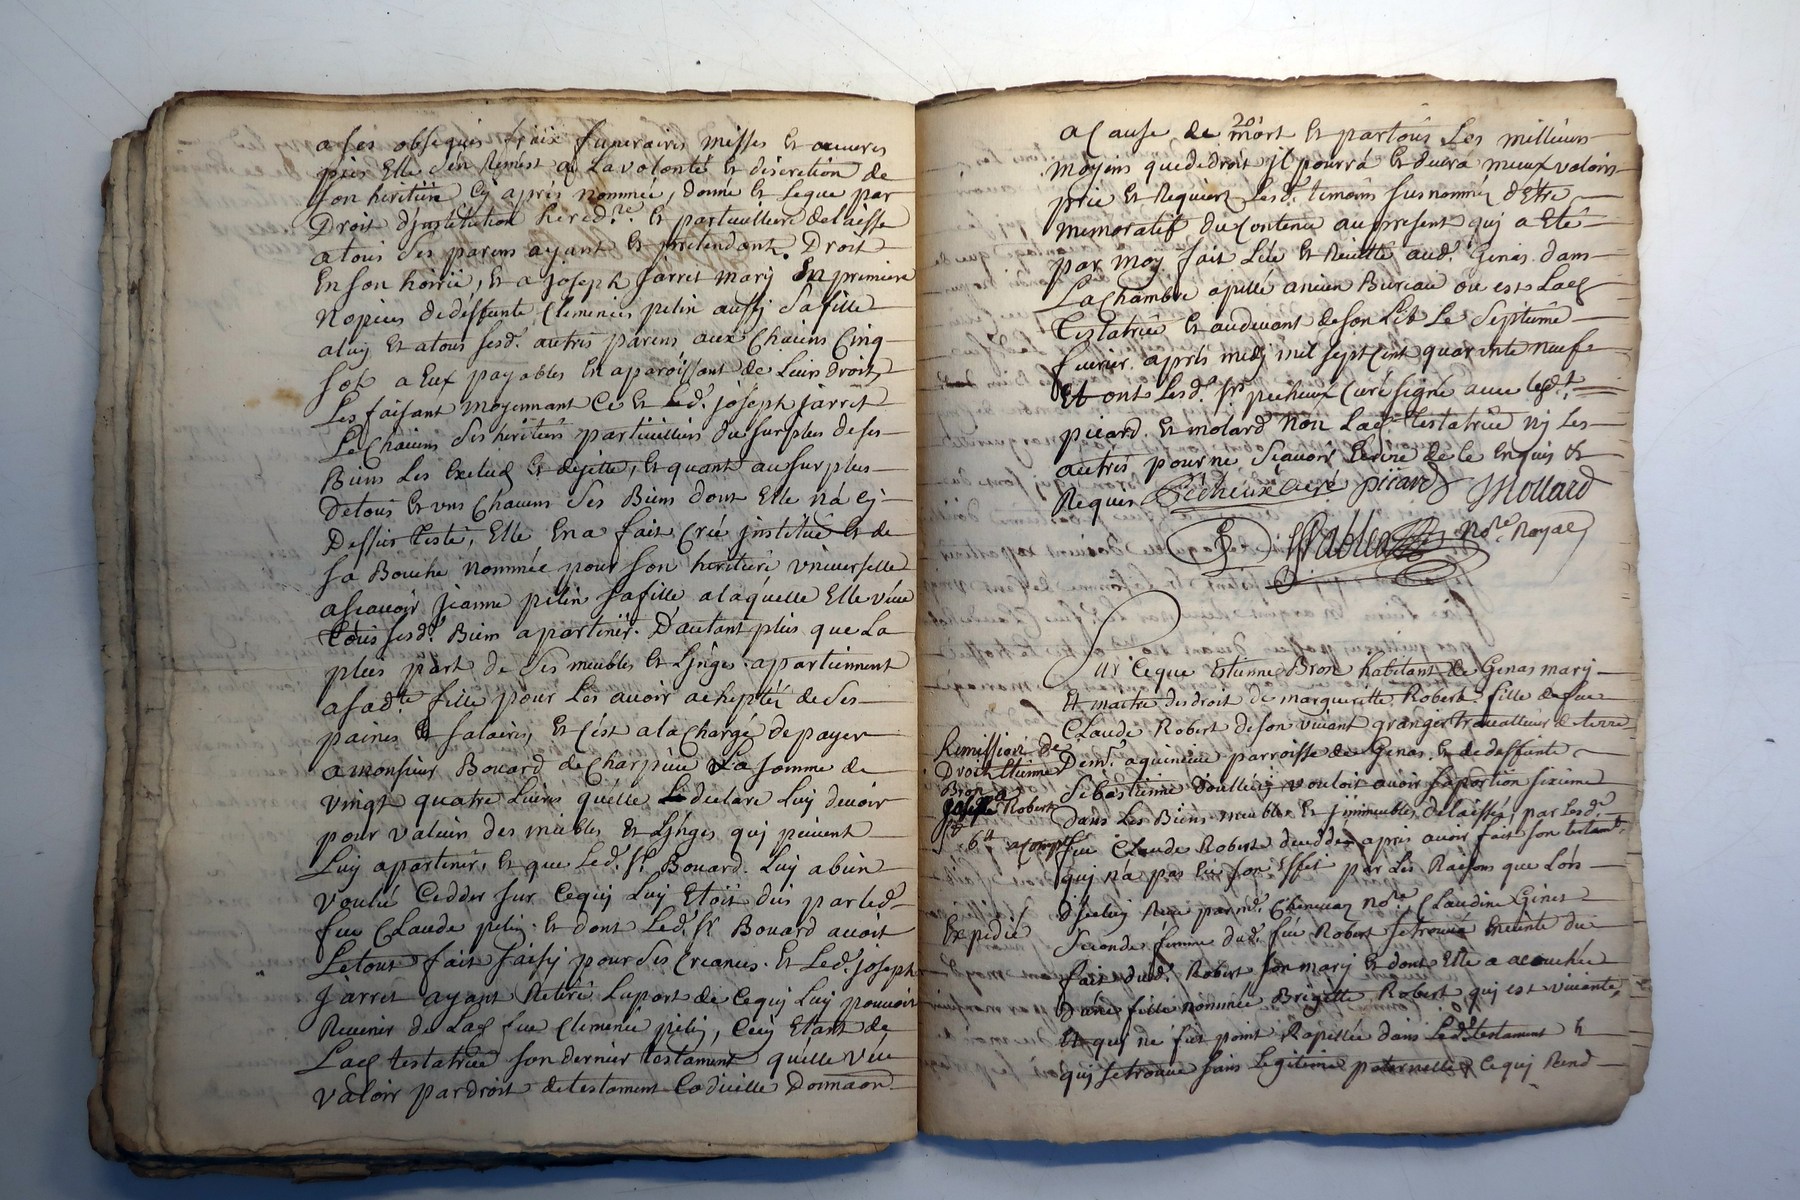 a ses obseques fraix funeraires messes et œuvres
pies Elle s'en Remest a La volonté et discretion de
son heritiere Cy apres nommée, donne et legue par
Droit d'jnstitution hered.re et particulliere delaisse
a tous ses parens ayant et pretendant Droit
En son hoirie, et a joseph jarret mary En premiere
Nopces de deffunte Clemence pelin aussy sa fille
a luy et a tous sesd. autres parens aux Chacuns Cinq
sols a Eux payables En aparoissant de Leurs droits
Les faisant moyennant Ce et Led. joseph jarret
Le Chacuns ses heritiers particuilliers du surplus de ses
Biens Les Exclud et dejette, et quant au surplus
De tous et uns Chacuns ses Biens dont Elle n'a cy
Dessus testé, Elle En a fait Créé jnstitué et de
sa Bouche Nommée pour son heritiere vniverselle
a scavoir jeanne pelin sa fille a laquelle Elle veut
tous sesd. Biens apartenir. D'autant plus que La
plus part de ses meubles et Ljnges apartiennent
a sad.te fille pour Les avoir acheptéz de ses
paines et salaires, et C'est a la Charge de payer
a monsieur Bouard de Charpieu La somme de
vingt quatre Livres qu'elle declare Luy devoir
pour valeurs des meubles et Ljnges qui peuvent
Luy apartenir, et que Led. Sr Bouard Luy a bien
voulu Cedder sur Cequy Luy Etoit dus par led.
feu Claude pelin et dont Led. Sr Bouard avoit
Le tout fait saisy pour ses Creances. Et Led. joseph
jarret ayant Retiré Laport de Cequy Luy pouvoit
Revenir de Lad. feue Clemence pelin, Cecy Etant de
Lad. testatrice son dernier testament qu'elle veut
valoir par droit de testament Codicille Donnaon
20
a Cause de mort et par tous Les milleurs
moyens que de droit jl pourra et devra mieux valoir
prie et Requiert Lesd. temoins susnommez d'Etre
memoratif du Contenu au present qui a Eté
par moy fait Leu et Recitté aud. Genas dans
La Chambre apellé ancien Bureau ou est Lad.
Testatrice et au devant de son Lit Le septieme
fevrier apres medy mil sept Cent quarante neuf
Et ont Lesd. Sr pecheux Curé signé avec lesd.
picard et molard Non Lad. testatrice ny Les
autres pour ne scavoir Ecrire de Ce Enquis et
Requis Pecheux Curé picard Mollard
No.re Royal
Sur Ceque Etienne Bron habitant de Genas mary
et maitre des droit de marguerite Robert fille de feu
Claude Robert de son vivant granger travailleur de terre
Dem.t parroisse de Genas et de deffunte
Sebastienne vouloit avoir sa portion sixieme
dans Les Biens meubles et jmmeubles delaissés par Lesd.
feu Claude Robert decedde apres avoir fait son testamt.
qui n'a pas Eu son Effet par Les Raisons que Lors
d'jceluy Receu par me. No.re Claudine
Seconde femme dud. feu Robert se trouva Enceinte du
fait dud. Robert son mary et dont Elle a acouchée
D'une fille nommée Brigette Robert qui est vivante
Et qui ne fut point Rapellée dans Led. testament et
qui se trouve sans Legitime paternelle Cequi Rend
Remission de
Droit Etienne
Bron a
Robert
6tt acompt
Expedié